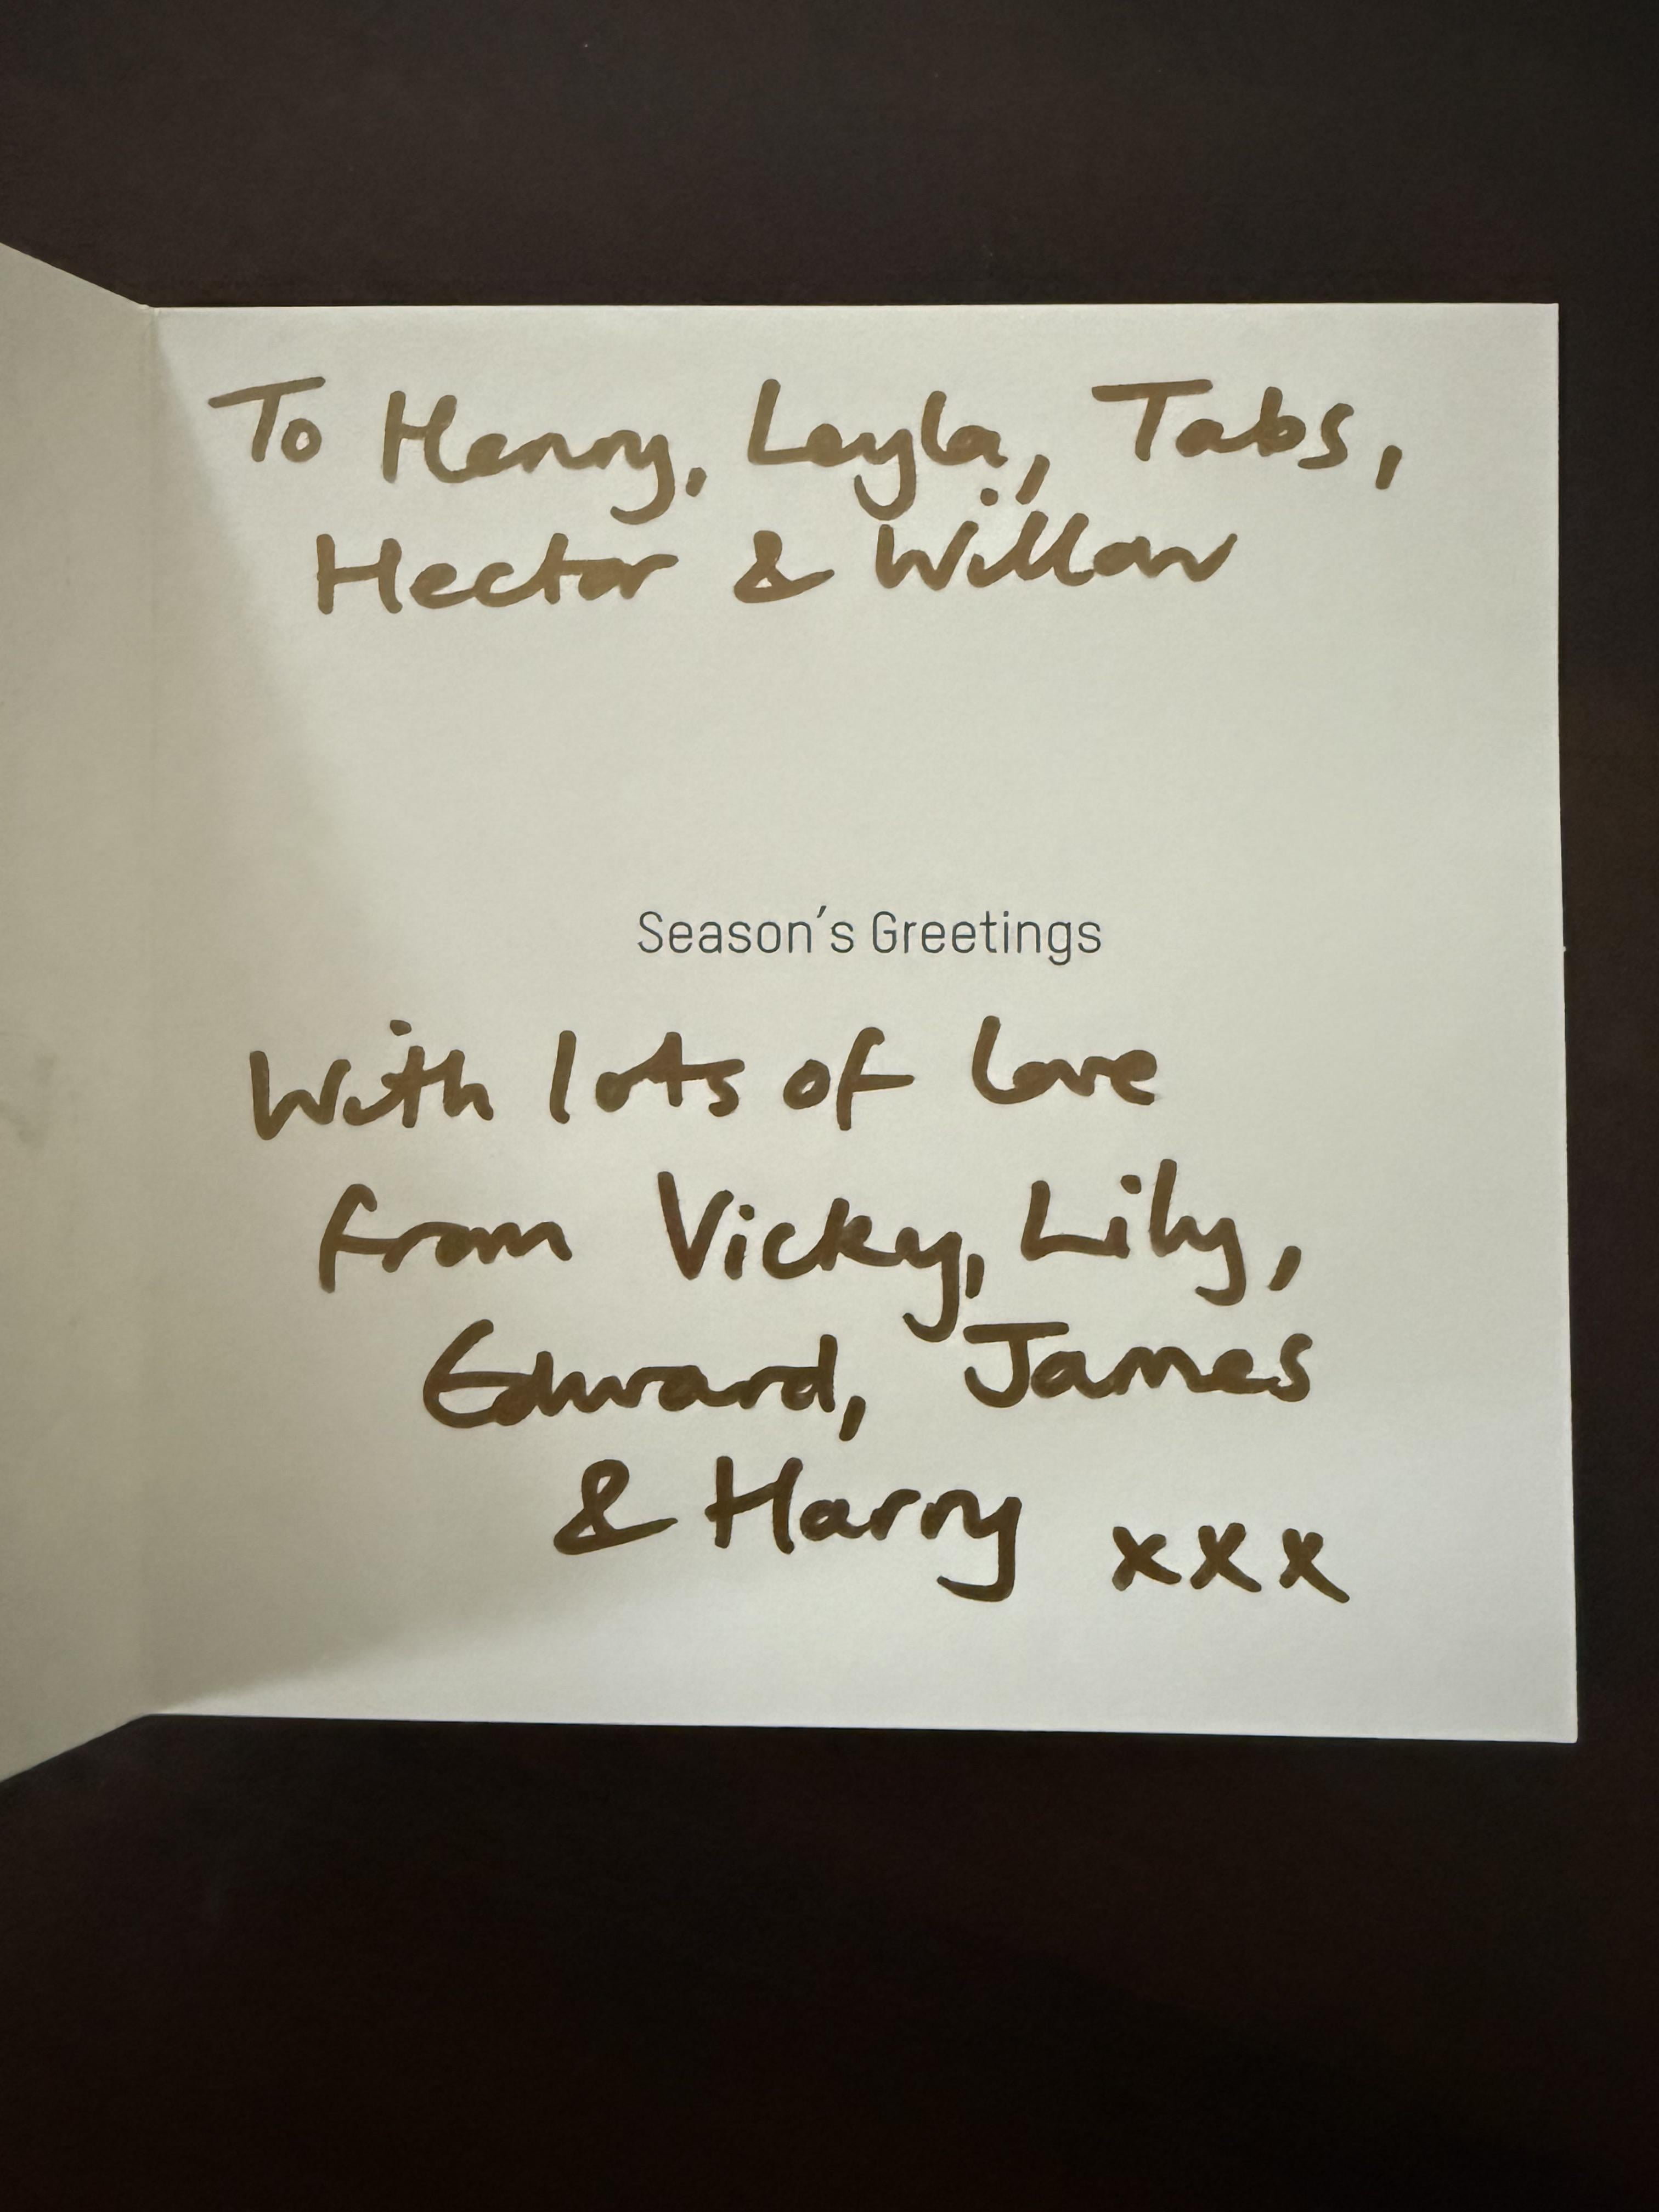 To Henry, Leyla, Tabs,
Hector & Willow
Season's Greetings
With lots of love
from Vicky, Lily,
Edward, James
& Harry xxx